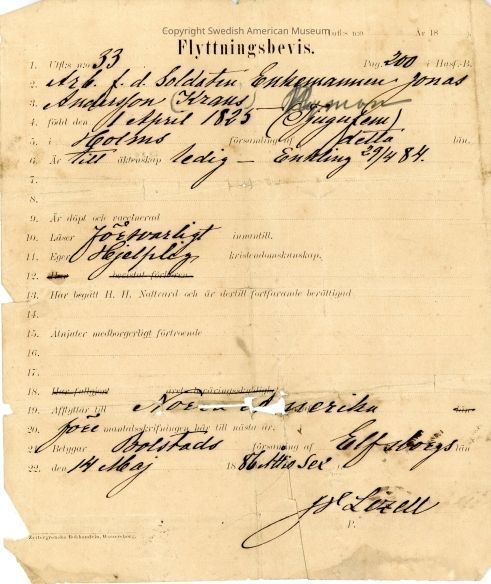 Copyright Swedish American Museum
Utfls n:o År 18
Flyttningsbevis.
1. Utfls n:o 33 Pag. 200 i Husf.-B.
2. Arb. f. d. Soldaten Enkemannen Jonas
3. Andersson (Krans)
4. född den 11 April 1825 (Tjugufem)
5. i Holms församling af detta län.
6. Är till äktenskap ledig — Enkling 29/4 84.
7.
8.
9. Är döpt och vaccinerad
10. Läser försvarligt innantill.
11. Eger Hjelplig kristendomskunskap.
12. Har bevistat förhören
13. Har begått H. H. Nattvard och är dertill fortfarande berättigad.
14.
15. Åtnjuter medborgerligt förtroende
16.
17.
18. Har fullgjort årets beväringsskyldighet
19. Afflyttar till Norra Amerika län
20. före mantalsskrifningen här till nästa år.
21. Betygar Bolstads församling af Elfsborgs län
22. den 14 Maj 1886 Åttio Sex
Lizell
P.
Zettergrenska Bokhandeln, Wenersborg.